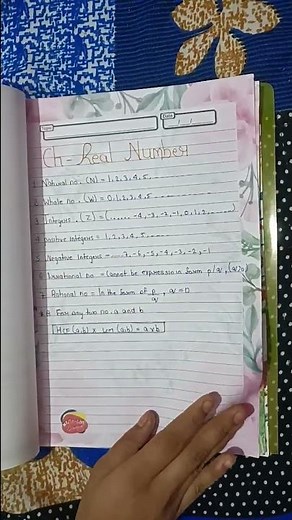 Date
Ch- Real Number
1. Natural no. (N) = 1,2,3,4,5,------
2. Whole no. (W) = 0,1,2,3,4,5------
3. Integers. (Z) = (......, -4, -3, -2, -1, 0, 1, 2,......)
4. positive Integers = 1,2,3,4,5-----
5. Negative Integers = .....-7, -6, -5, -4, -3, -2, -1
6. Irrational no = Cannot be expression in form p/q,
7. Rational no = In the form of p/q, q = 0
# For any two no. a and b
HCF (a,b) x Lcm (a,b) = a x b